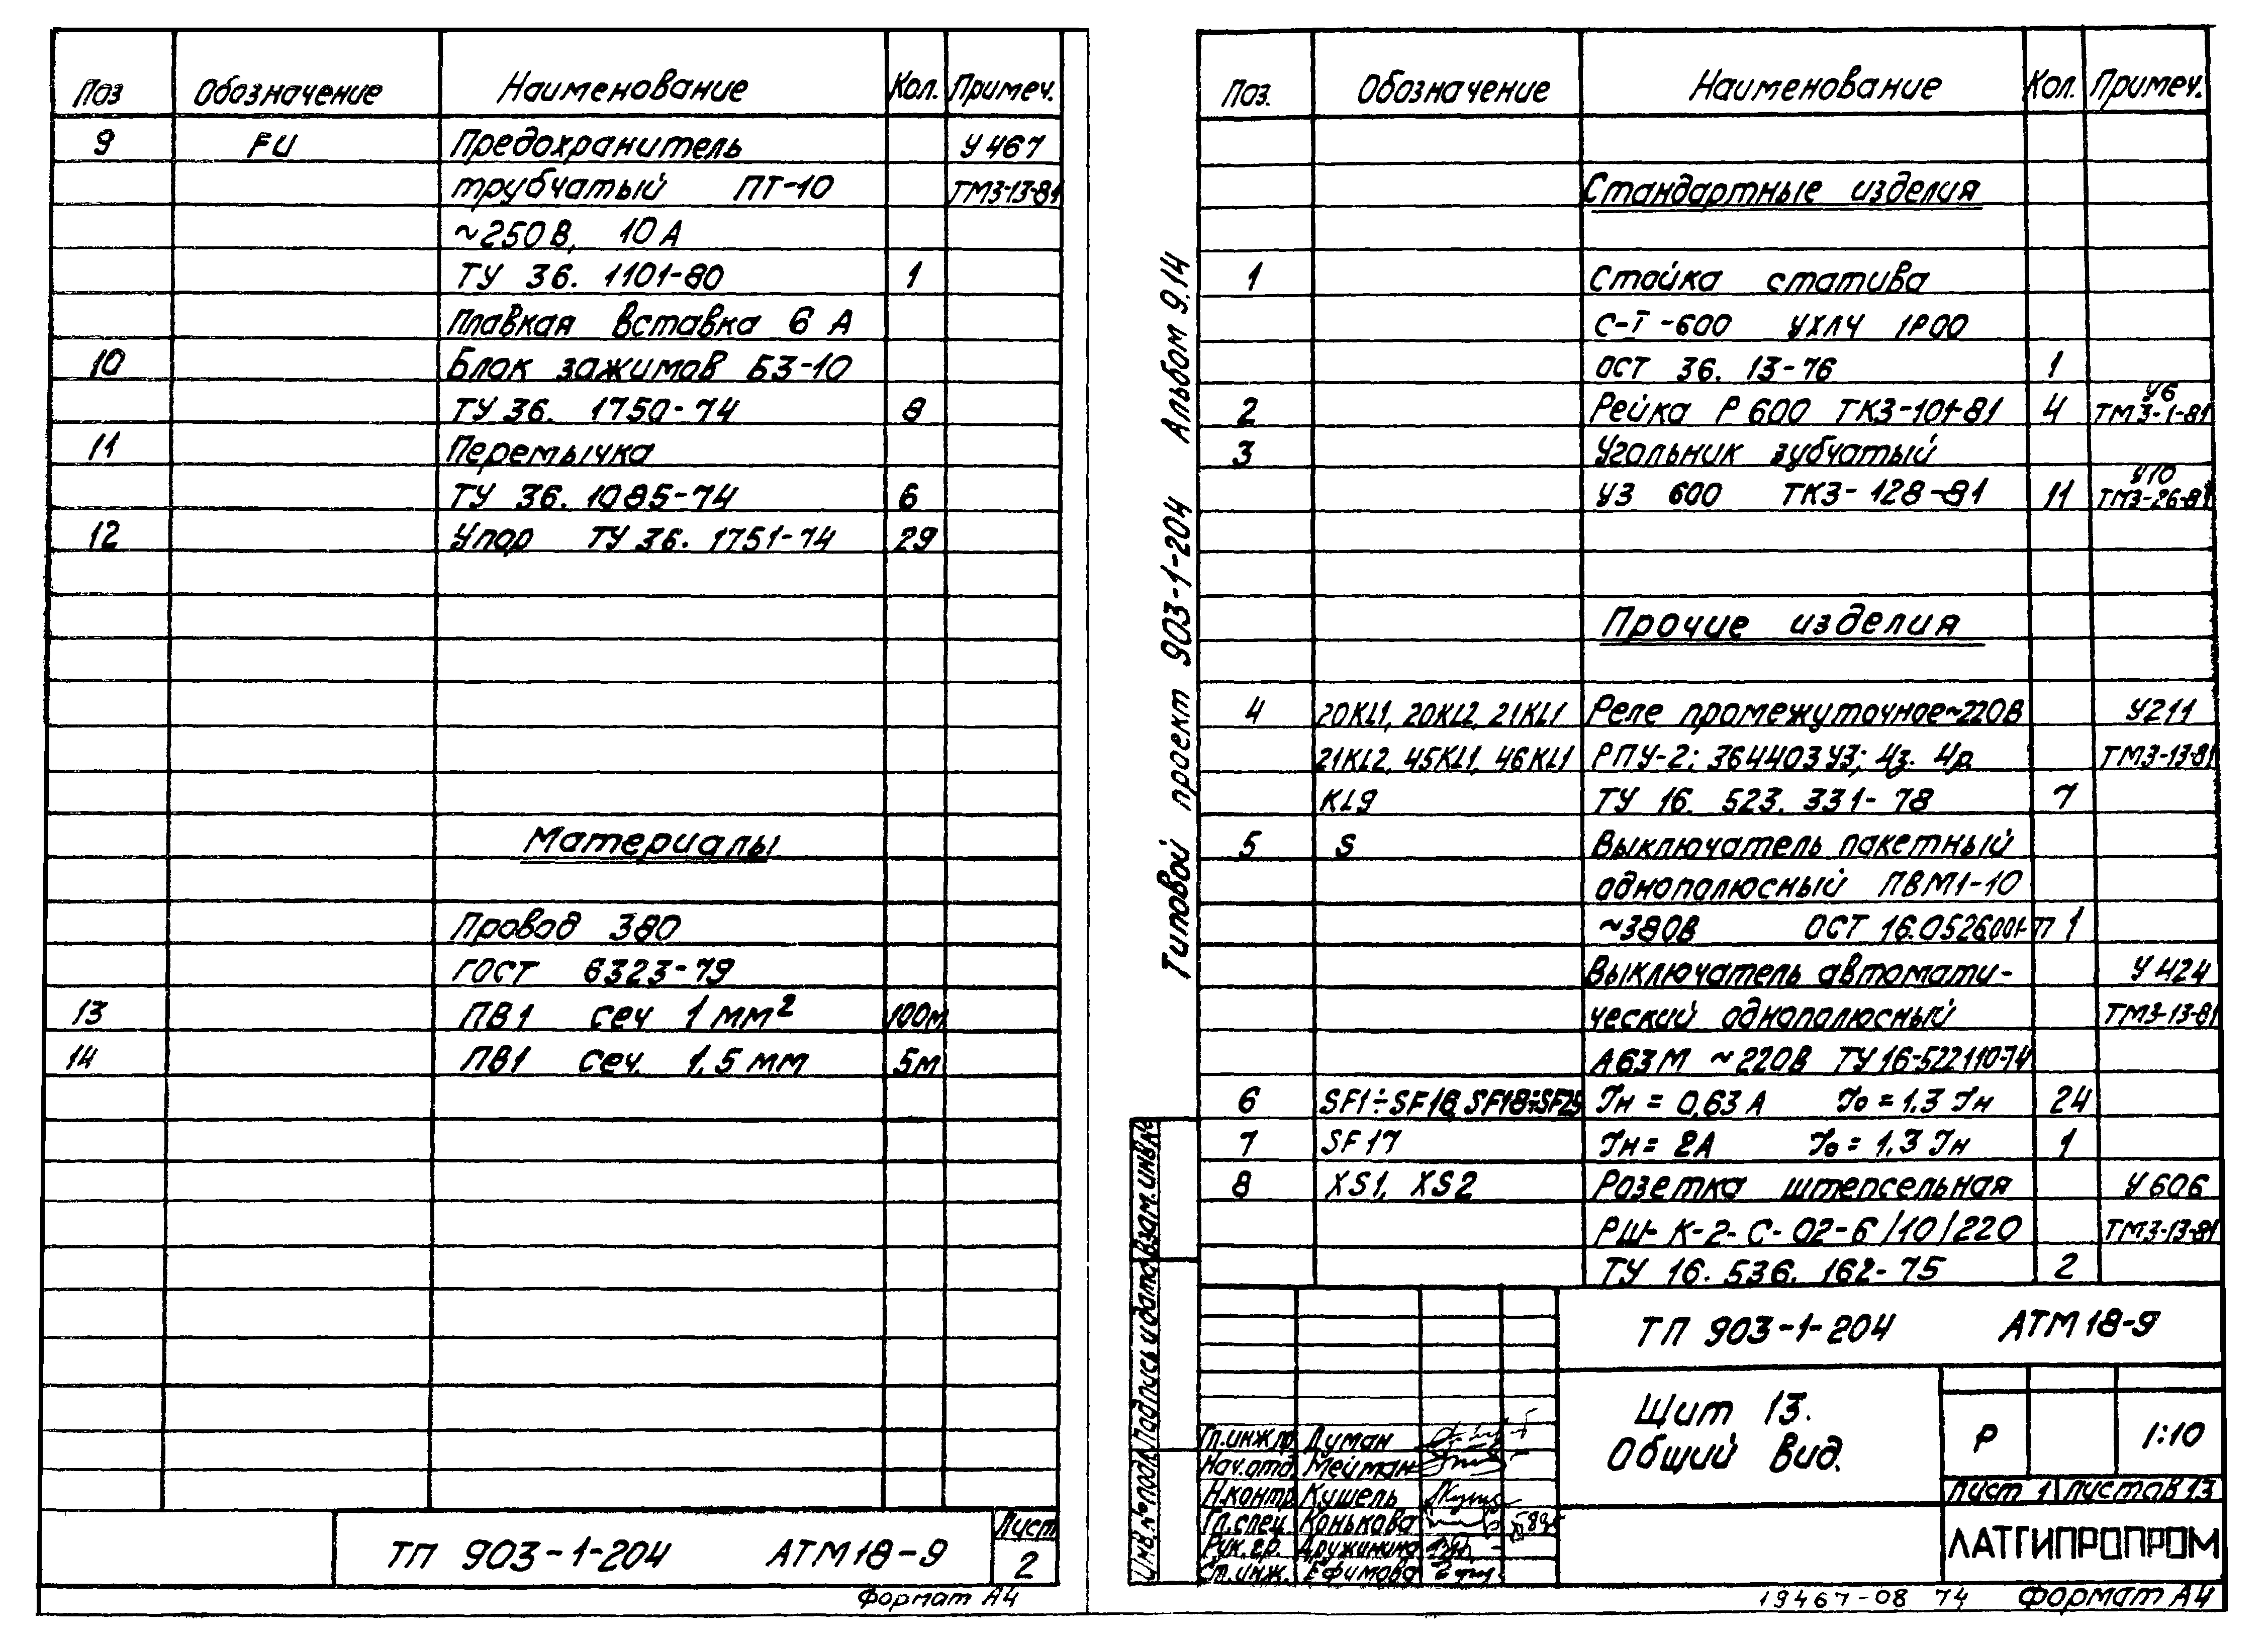 Поз Обозначение Наименование Кол. Примеч.
9 FU Предохранитель У467
трубчатый ПТ-10 ТМ3-13-81
~250В, 10А
ТУ 36. 1101-80 1
Плавкая вставка 6 А
10 Блок зажимов БЗ-10
ТУ 36. 1750-74 8
11 Перемычка
ТУ 36. 1085-74 6
12 Упор ТУ 36. 1751-74 29
Материалы
Провод 380
ГОСТ 6323-79
13 ПВ1 сеч 1 мм² 100м
14 ПВ1 сеч. 1,5 мм 5м
ТП 903-1-204 АТМ18-9
Лист
2
Формат А4
Типовой проект 903-1-204 Альбом 9.14
Поз. Обозначение Наименование Кол. Примеч.
Стандартные изделия
1 Стойка статива
С-I-600 УХЛЧ IP00
ОСТ 36. 13-76 1
У6
2 Рейка Р 600 ТКЗ-101-81 4 ТМ3-1-81
3 Угольник зубчатый
У10
УЗ 600 ТКЗ-128-81 11 ТМ3-26-81
Прочие изделия
4 20KL1, 20KL2, 21KL1 Реле промежуточное~220В У211
21KL2, 45KL1, 46KL1 РПУ-2; 364403У3; 4з. 4р. ТМ3-13-81
KL9 ТУ 16. 523. 331-78 7
5 S Выключатель пакетный
однополюсный ПВМ1-10
~380В ОСТ 16.0526.001-77 1
Выключатель автомати- У424
ческий однополюсный ТМ3-13-81
А63М ~220В ТУ16-522110-74
6 SF1÷SF16, SF18÷SF25 Iн = 0,63 А Iо = 1,3 Iн 24
7 SF17 Iн = 2А Iо = 1,3 Iн 1
8 XS1, XS2 Розетка штепсельная У606
РШ-К-2-С-02-6/10/220 ТМ3-13-81
ТУ 16. 536. 162-75 2
Инв.№подл. Подпись и дата Взам.инв.№
ТП 903-1-204 АТМ18-9
Щит 13.
Общий вид.
Р 1:10
Лист 1 Листов 13
ЛАТГИПРОПРОМ
Гл.инж.пр. Думан
Нач.отд. Мейман
Н.контр. Кушель
Гл.спец. Конькова
Рук.гр. Дружинина
Ст.инж. Ефимова
19467-08 74 Формат А4